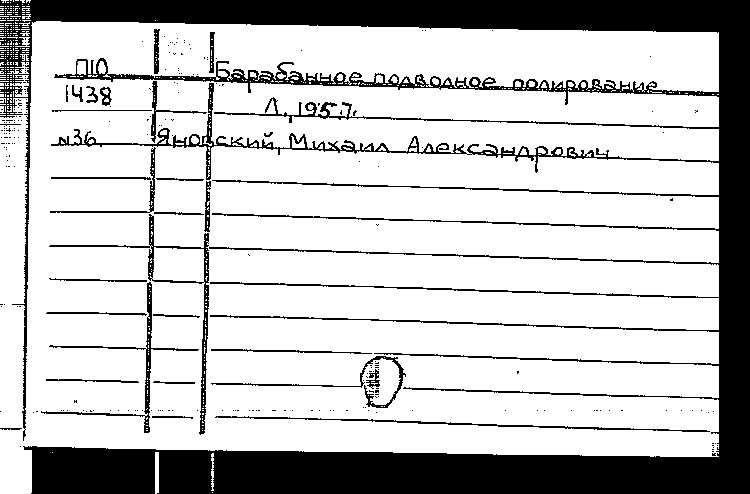 П10 Барабанное подводное полирование
1438 Л., 1957.
N36. Яновский, Михаил Александрович